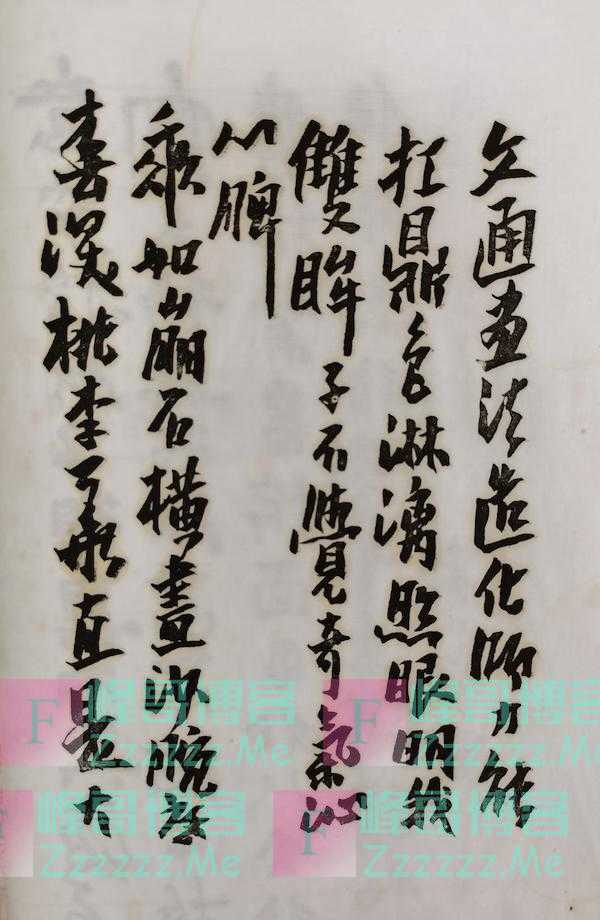 文通畫法造化師力能
扛鼎色淋漓照眼明我
雙眸子不覺奇氣沁
心脾
如崩石橫畫沙
桃李 直是大
F 峰哥博客
Zzzzzz.Me
F 峰哥博客
Zzzzzz.Me
峰哥博客
Zzzzzz.Me
F 峰哥博客
Zzzzzz.Me